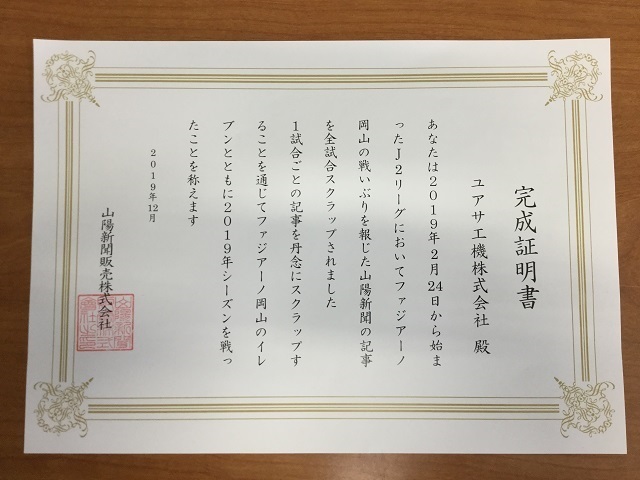 完成証明書
ユアサ工機株式会社 殿
あなたは2019年2月24日から始ま
ったJ2リーグにおいてファジアーノ
岡山の戦いぶりを報じた山陽新聞の記事
を全試合スクラップされました
1試合ごとの記事を丹念にスクラップす
ることを通じてファジアーノ岡山のイレ
ブンとともに2019年シーズンを戦っ
たことを称えます
2019年12月
山陽新聞販売株式会社